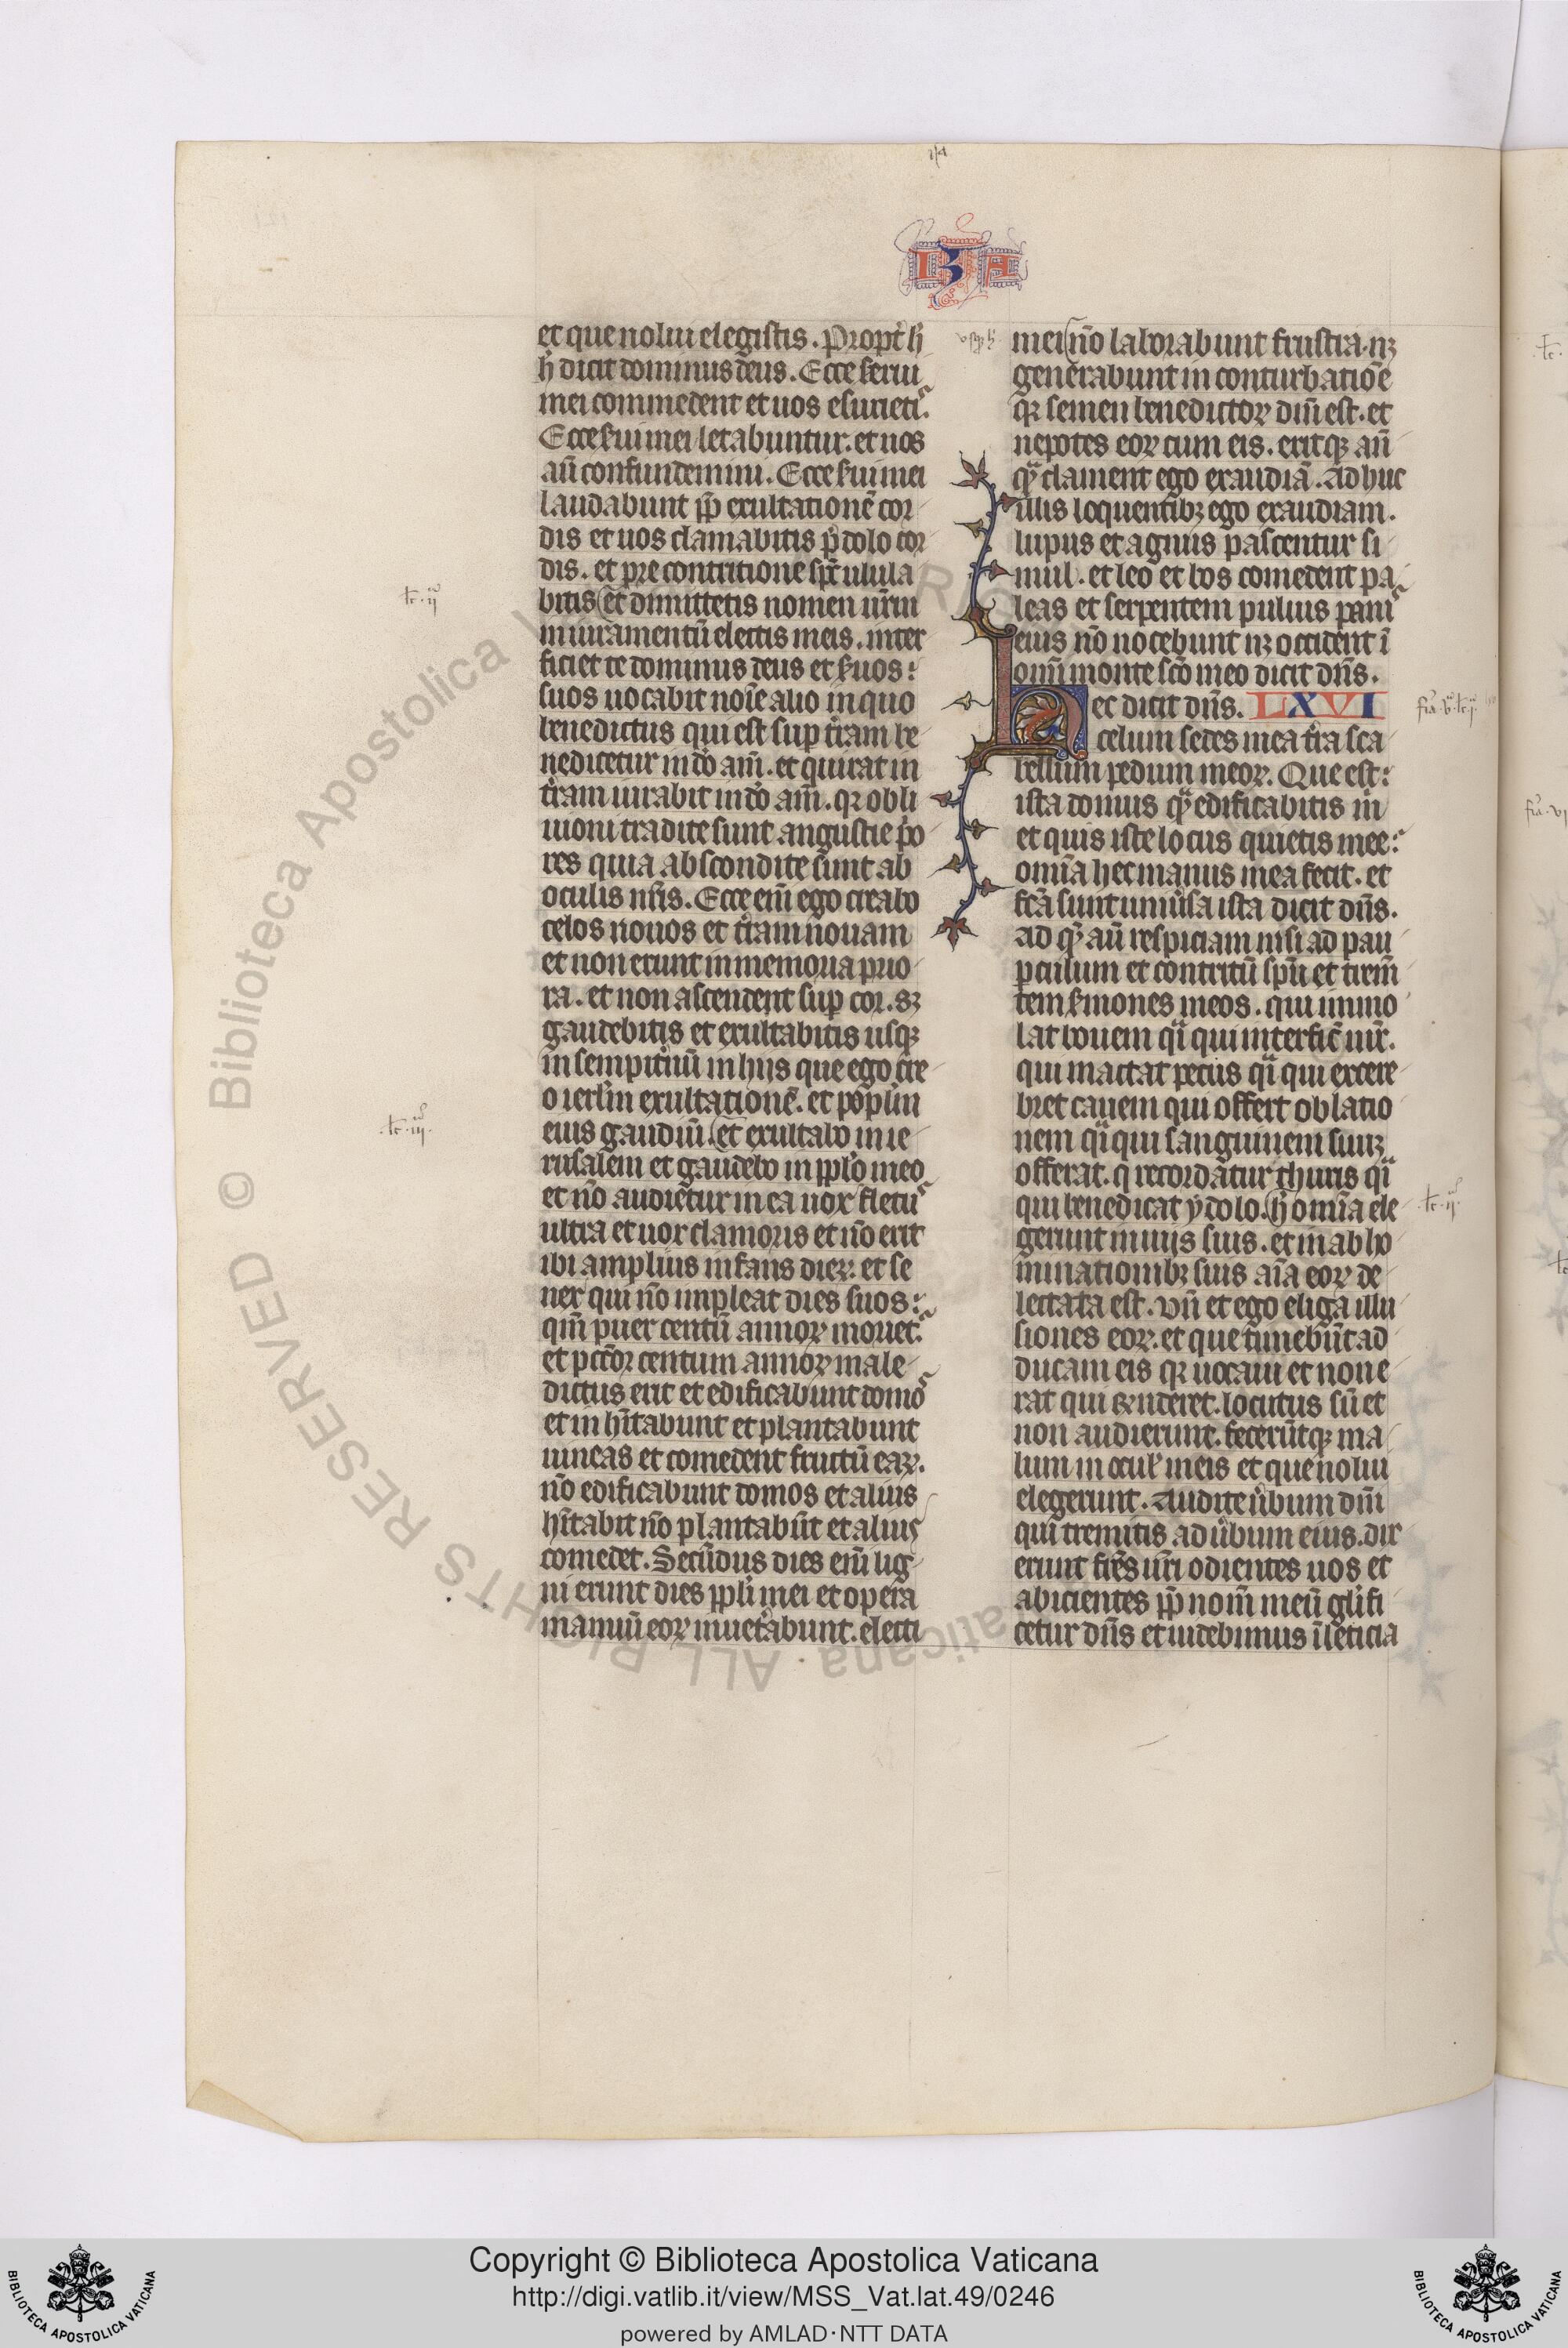 YSA
et que nolui elegistis. Propt̾ h̾
h̾ dicit dominus deus. Ecce serui
mei commedent et uos esurietis.
Ecce s̾ui mei letabuntur. et uos
aut̄ confundemini. Ecce s̾ui mei
laudabunt pp̄ exultationē cor
dis et uos clamabitis p̄ dolo cor
dis. et pre contritione sp̄c ulula
bitis et dimittetis nomen ur̄m
in iuramentū electis meis. inter
ficiet te dominus deus et s̾uos:
suos uocabit noīe alio in quo
benedictus qui est sup t̾ram be
nedicetur in do am̄. et qui iurat in
t̾ram iurabit in do am̄. qꝛ obli
uioni tradite sunt angustie p̾o
res quia abscondite sunt ab
oculis nr̄is. Ecce em̄ ego creabo
celos nouos et t̾ram nouam
et non erunt in memoria prio
ra. et non ascendent sup cor. sꝫ
gaudebitis et exultabitis usqꝫ
in sempit̾nū in hijs que ego cre
o ierl̄m exultationē. et popl̄m
eius gaudiū. et exultabo in ie
rusalem et gaudebo in ppl̄o meo
et nō audiētur in ea uox fletus
ultra et uox clamoris et nō erit
ibi amplius infans dieꝝ. et se
nex qui nō impleat dies suos:
qm̄ puer centū annoꝝ morietur.
et pcc̄or centum annoꝝ male
dictus erit et edificabunt domos
et inhītabunt et plantabunt
uineas et comedent fructū eaꝝ.
nō edificabunt domos et alius
hītabit nō plantabūt et alius
comedet. Secūdus dies em̄ lig
ni erunt dies ppl̄i mei et opera
manuū eoꝝ inuet̾abunt. electi
mei nō laborabunt frustra. nꝫ
generabunt in conturbatiōe
qꝛ semen benedictoꝝ dn̄i est. et
nepotes eoꝝ cum eis. eritqꝫ an̄
qᷓ clament ego exaudiā. Adhuc
illis loquentibꝫ ego exaudiam.
lupus et agnus pascentur si
mul. et leo et bos comedent pa
leas et serpentem puluis panis
eius nō nocebunt nꝫ occident ī
omni monte sc̄o meo dicit dn̄s.
Hec dicit dn̄s. LXVI
celum sedes mea t̾ra sca
bellum pedum meoꝝ. Que est:
ista domus qᷓ edificabitis m̄
et quis iste locus quietis mee:
omīa hec manus mea fecit. et
fc̄a sunt uniu̾sa ista dicit dn̄s.
ad qꝫ aut̄ respiciam nisi ad pau
perculum et contritū sp̄u et trem̄
tem s̾mones meos. qui immo
lat bouem qi qui interfic̄ uir̄.
qui mactat pecus qi qui excere
bret canem qui offert oblatio
nem qi qui sanguinem suum
offerat. q recordatur thuris qi
qui benedicat ydolo. h̾ omīa ele
gerunt in uijs suis. et in abho
minationibꝫ suis aīa eoꝝ de
lectata est. vn̄ et ego eligā illu
siones eoꝝ. et que timebūt ad
ducam eis qꝛ uocaui et non e
rat qui rn̄deret. locutus sū et
non audierunt. fecerūtqꝫ ma
lum in ocul̾ meis et que nolui
elegerunt. Audite u̾bum dn̄i
qui tremitis ad u̾bum eius. dix
erunt fr̄es ur̄i odientes uos et
abicientes pp̄ nom̄ meū gl̾ifi
cetur dn̄s et uidebimus ī leticia
lc̄. ij
lc̄. iij
fr̄a. v. lc̄. j.
lc̄. ij.
© Biblioteca Apostolica Vaticana ALL RIGHTS RESERVED
Copyright © Biblioteca Apostolica Vaticana
http://digi.vatlib.it/view/MSS_Vat.lat.49/0246
powered by AMLAD·NTT DATA
BIBLIOTECA APOSTOLICA VATICANA
BIBLIOTECA APOSTOLICA VATICANA